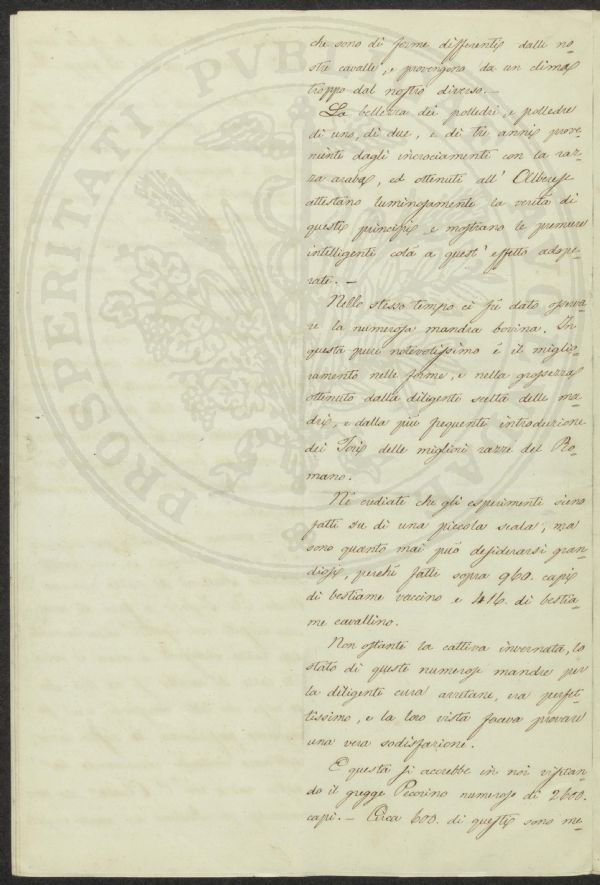 che sono di forme differenti dalle no-
stre cavalle, e provengono da un clima
troppo dal nostro diverso. —
La bellezza dei polledri, e polledre
di uno, di due, e di tre anni prove-
niente dagli incrociamenti con la raz-
za araba, ed ottenuti all' Alberese
attestano luminosamente la verità di
questi principi e mostrano le premure
intelligenti colà a quest' effetto adope-
rate. —
Nello stesso tempo ci fu dato osserva-
re la numerosa mandra bovina. In
questa pure notevolissimo è il miglio-
ramento nelle forme, e nella grossezza
ottenuto dalla diligente scelta delle ma-
dri, e dalla più frequente introduzione
dei Tori delle migliori razze del Ro-
mano.
Né crediate che gli esperimenti sieno
fatti su di una piccola scala, ma
sono quanto mai può desiderarsi gran-
diosi, perché fatti sopra 960. capi
di bestiame vaccino e 416. di bestia-
me cavallino.
Non ostante la cattiva invernata, lo
stato di queste numerose mandre per
la diligente cura arretane, era perfet-
tissimo, e la loro vista faceva provare
una vera sodisfazione.
E questa si accrebbe in noi visitan-
do il gregge Pecorino numeroso di 2600.
capi. — Circa 600. di questi sono me-
PROSPERITATI PVB